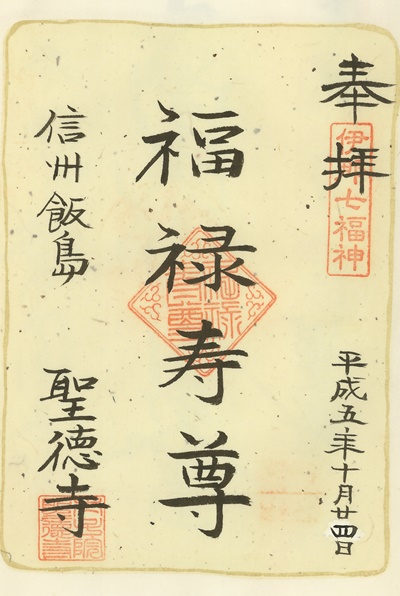 奉拝
伊那七福神
平成五年十月廿四日
福禄寿尊
信州飯島
聖徳寺